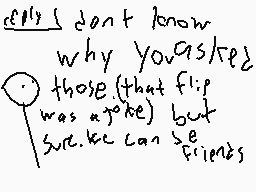 reply I dont know
why you asked
those. (that flip
was a joke) but
sure. we can be
friends